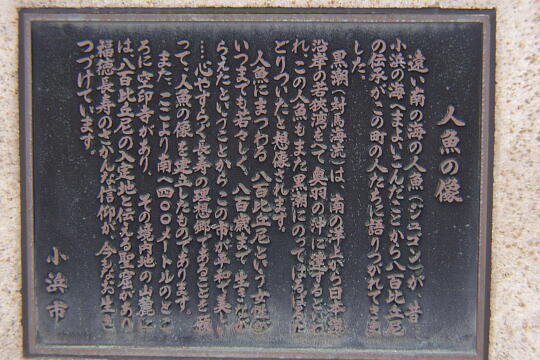 人魚の像
遠い南の海の人魚（ジュゴン）が、昔
小浜の海へまよいこんだことから八百比丘尼
の伝承がこの町の人たちに語りつがれてきま
した。
黒潮（対馬海流）は、南の沖から日本海
沿岸の若狭湾をへて、奥羽の沖に達するといわ
れ、この人魚もまた黒潮にのってはるばるた
どりついたと想像されます。
人魚にまつわる、八百比丘尼という女性が
いつまでも若々しく、八百歳まで、生きなが
らえたということから、この市が平和で美しい
…心やすらぐ長寿の理想郷であることを願
って、人魚の像を建立したものであります。
また、ここより南へ四〇〇メートルのとこ
ろに空印寺があり、その境内地の山麓に
は八百比丘尼の入定地と伝える聖窟があり
福徳長寿のさかんな信仰が、今なお生き
つづけています。
小浜市